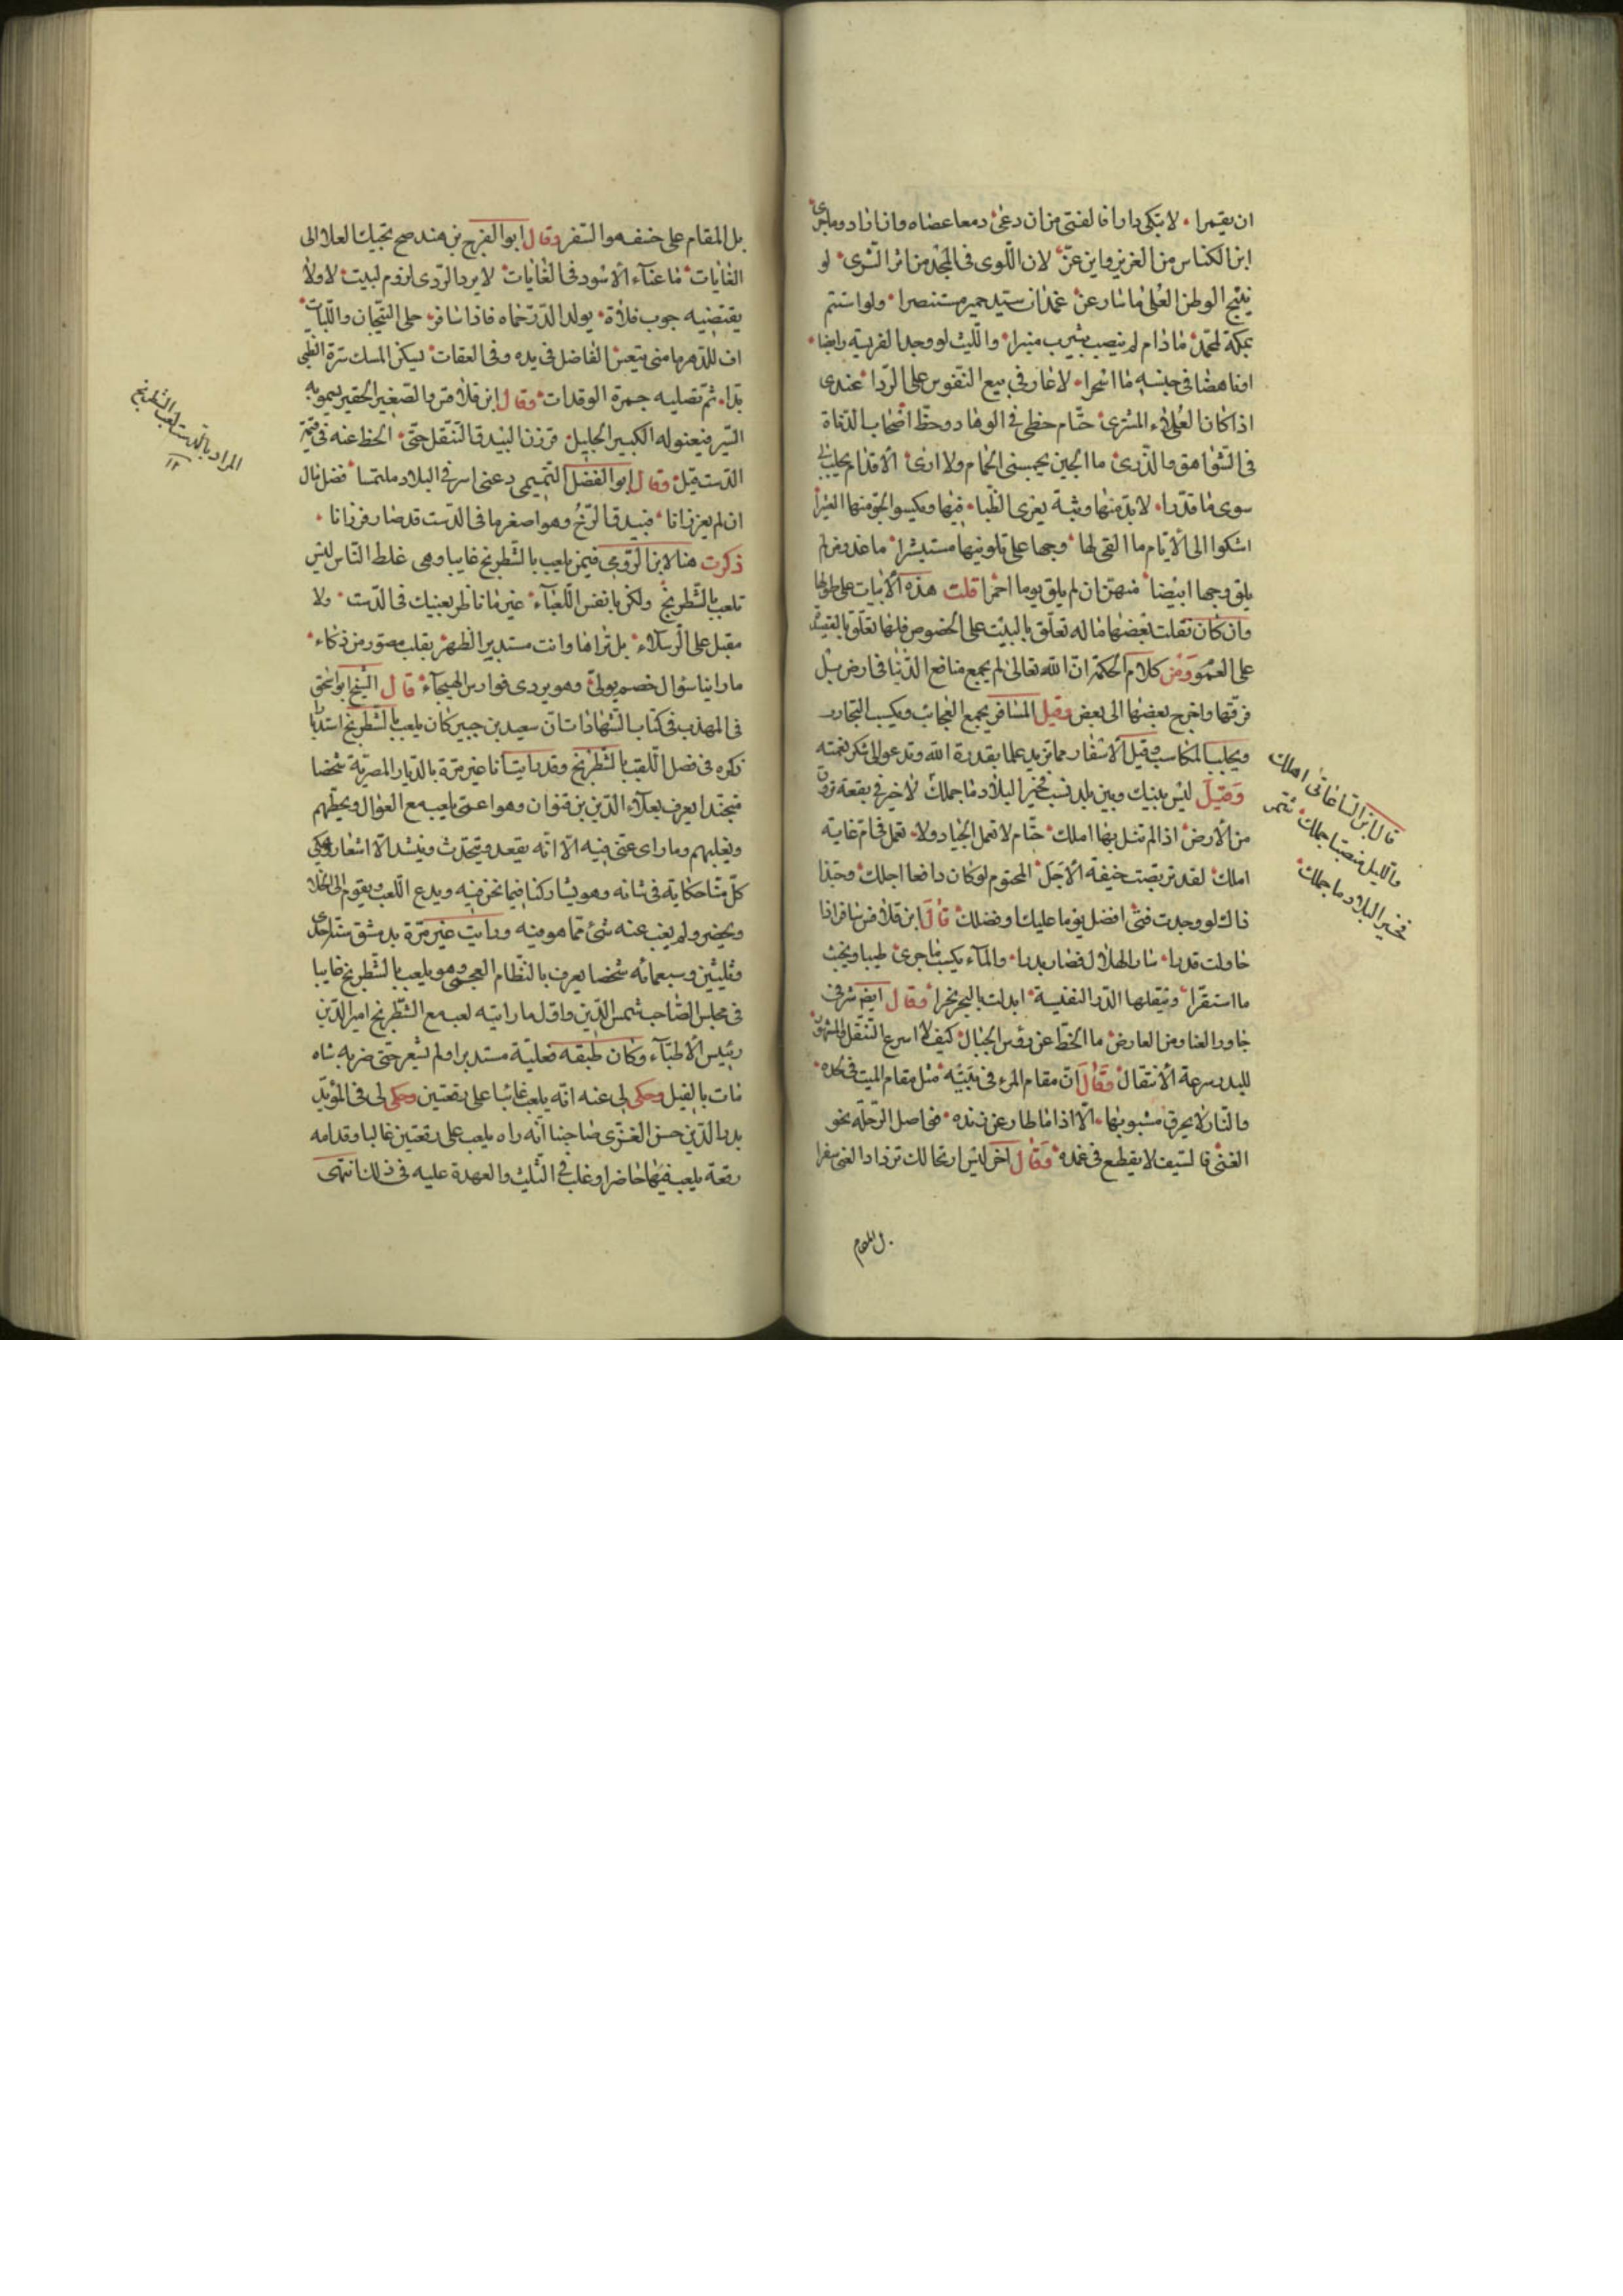 ان يقيمرا لا تبكى دارا فالفتى من ان دعى دمعا عصاه وان اراد وما جرى
اين الكناس من العزيز واين عن لان اللوى فى المجد من اثر الشرى لو
ينتج الوطن العلى ما سار عن غمدان سيد حمير مستنصرا ولو استتم
بمكة لمحمد ما دام لم ينصب بيثرب منبرا والليث لو وجد الفريسة رابضا
اوناهضا فى جنسه ما اسحرا لا عار فى بيع النفوس على الردا عندى
اذا كان العلاء المشترى حتام حظى فى الوهاد وحظ اصحاب الدناة
فى الشواهق والذرى ما الجبن يحبسنى الحمام ولا ارى الاقدام يجلب لى
سوى ما قدرا لا بد منها وثبة يغرى الظبا فيها ويكسوا الجو منها العثيرا
اشكوا الى الايام ما القى لها وجها على تلوينها مستبشرا ما غدون لم
يلق وجها ابيضا منهن ان لم يلق يوما احمرا قلت هذه الابيات على طولها
وان كان نقلت بعضها ما له تعلق بالبيت على الخصوص فلها تعلق بالقصيد
على العمو ومن كلام الحكمة ان الله تعالى لم يجمع منافع الدنيا فى ارض بل
فرقها واخرج بعضها الى بعض وقيل المسافر يجمع العجائب ويكسب التجارب
ويجلب المكاسب وقيل الاسفار مما تزيد علما بقدرة الله وتدعو الى شكر نعمته
وقيل ليس بينك وبين بلد نسب فخير البلاد ما جملك لا خير فى بقعة تروق
من الارض اذا لم تنل بها املك حتام لا تعمل الجياد ولا تعمل فى ام غاية
املك لقد تربصت خيفة الاجل المحتوم لو كان دافعا اجلك وحبذا
ذاك لو وجدت فتى افضل يوما عليك او فضلك قال ابن قلاقس سافر اذا
حاولت قدرا سار الهلال فصار بدرا والماء يكسب ما جرى طيبا ويخبث
ما استقرا وتنقلها الدرر النفيسة ابدلت بالبحر نحرا وقال ايضا شرفى
جاور الغنا ومن العارض ما انحط عن رؤس الجبال كيف لا اسرع التنقل والشهرة
للبدر سرعة الانتقال وقال ان مقام المرء فى بيته مثل مقام الميت فى لحده
والنار لا يحرق مشبوبها الا اذا ما طار عن زنده فواصل الرحلة نحو
الغنى فالسيف لا يقطع فى غمده وقال اخر ليس ارتحالك تزداد الغنى سفرا
بل المقام
قال ابن الساعاتى اهلك
والليل نصبا جملك شمر
فخير البلاد ما جملك
بل المقام على خسف هو السفر وقال ابو الفرج بن هند صح بخيلك العلا الى
الغايات ما عناء الاسود فى الغايات لا يرد الردى لزوم لبيت لا ولا
يقتضيه جوب فلاة يولد الدر حماه فاذا سافر حلى التيجان واللبات
اف للدهر ما منى يتعس الفاضل فى بده وفى العقبات يسكن المسك سرة الظبى
بدا ثم تصليه جمرة الوقدات وقال ابن قلاقس والصغير الحقير يسمو به
السير فيعنو له الكبير الجليل فرزن البيدق التنقل حتى انحط عنه فى قيمة
الدست فيل وقال ابو الفضل التميمى دعنى اسر فى البلاد ملتمسا فضل مال
ان لم يعز زانا فبيدق الرخ وهو اصغر ما فى الدست قد صار فرزانا
ذكرت هنا لابن الرومى فيمن يلعب بالشطرنج غايبا وهى غلط الناس ليس
تلعب بالشطرنج ولكن بانفس اللعباء غير ما ناظر بعينيك فى الدست ولا
مقبل على الرسلاء بل تراها وانت مستدبر الظهر بقلب مصور من ذكاء
ما راينا سؤال خصم يولى وهو يردى فوارس الهيجاء قال الشيخ ابو اسحق
فى المهذب فى كتاب الشهادات ان سعيد بن جبير كان يلعب بالشطرنج استدبارا
ذكره فى فصل اللعب بالشطرنج وقد رايت انا غير مرة بالديار المصرية شخصا
متجندا يعرف بعلاء الدين بن قنوان وهو اعمى يلعب مع العوال ويحطهم
ويغلبهم وما راى عتى فيه الا انه يقعد ويتحدث وينشد الاشعار ويحكى
كل منا حكاية فى شانه وهو يشاركنا فيما نحن فيه ويدع اللعب ويقوم الى الخلا
ويحضر ولم يغب عنه شئ مما هو فيه ورايت غير مرة بدمشق سنة احدى
وثلثين وسبعمائه شخصا يعرف بالنظام العجمى وهو يلعب بالشطرنج غايبا
فى مجلس الصاحب شمس الدين واول ما رايته لعب مع الشطرنج امير الدين
رئيس الاطباء وكان طبقه فغلبه مستدبرا ولم نشعر حتى ضربه شاه
مات بالفيل وحكى لى عنه انه يلعب غائبا على رقعتين وحكى لى فى المؤيد
بدر الدين حسن الغزى صاحبنا انه راه يلعب على رقعتين غالبا وقدامه
رقعة يلعب فيها حاضرا وغلب فى الثلث والعهدة عليه فى ذلك انتهى
المراد بالدست لعب الشطرنج
١٢